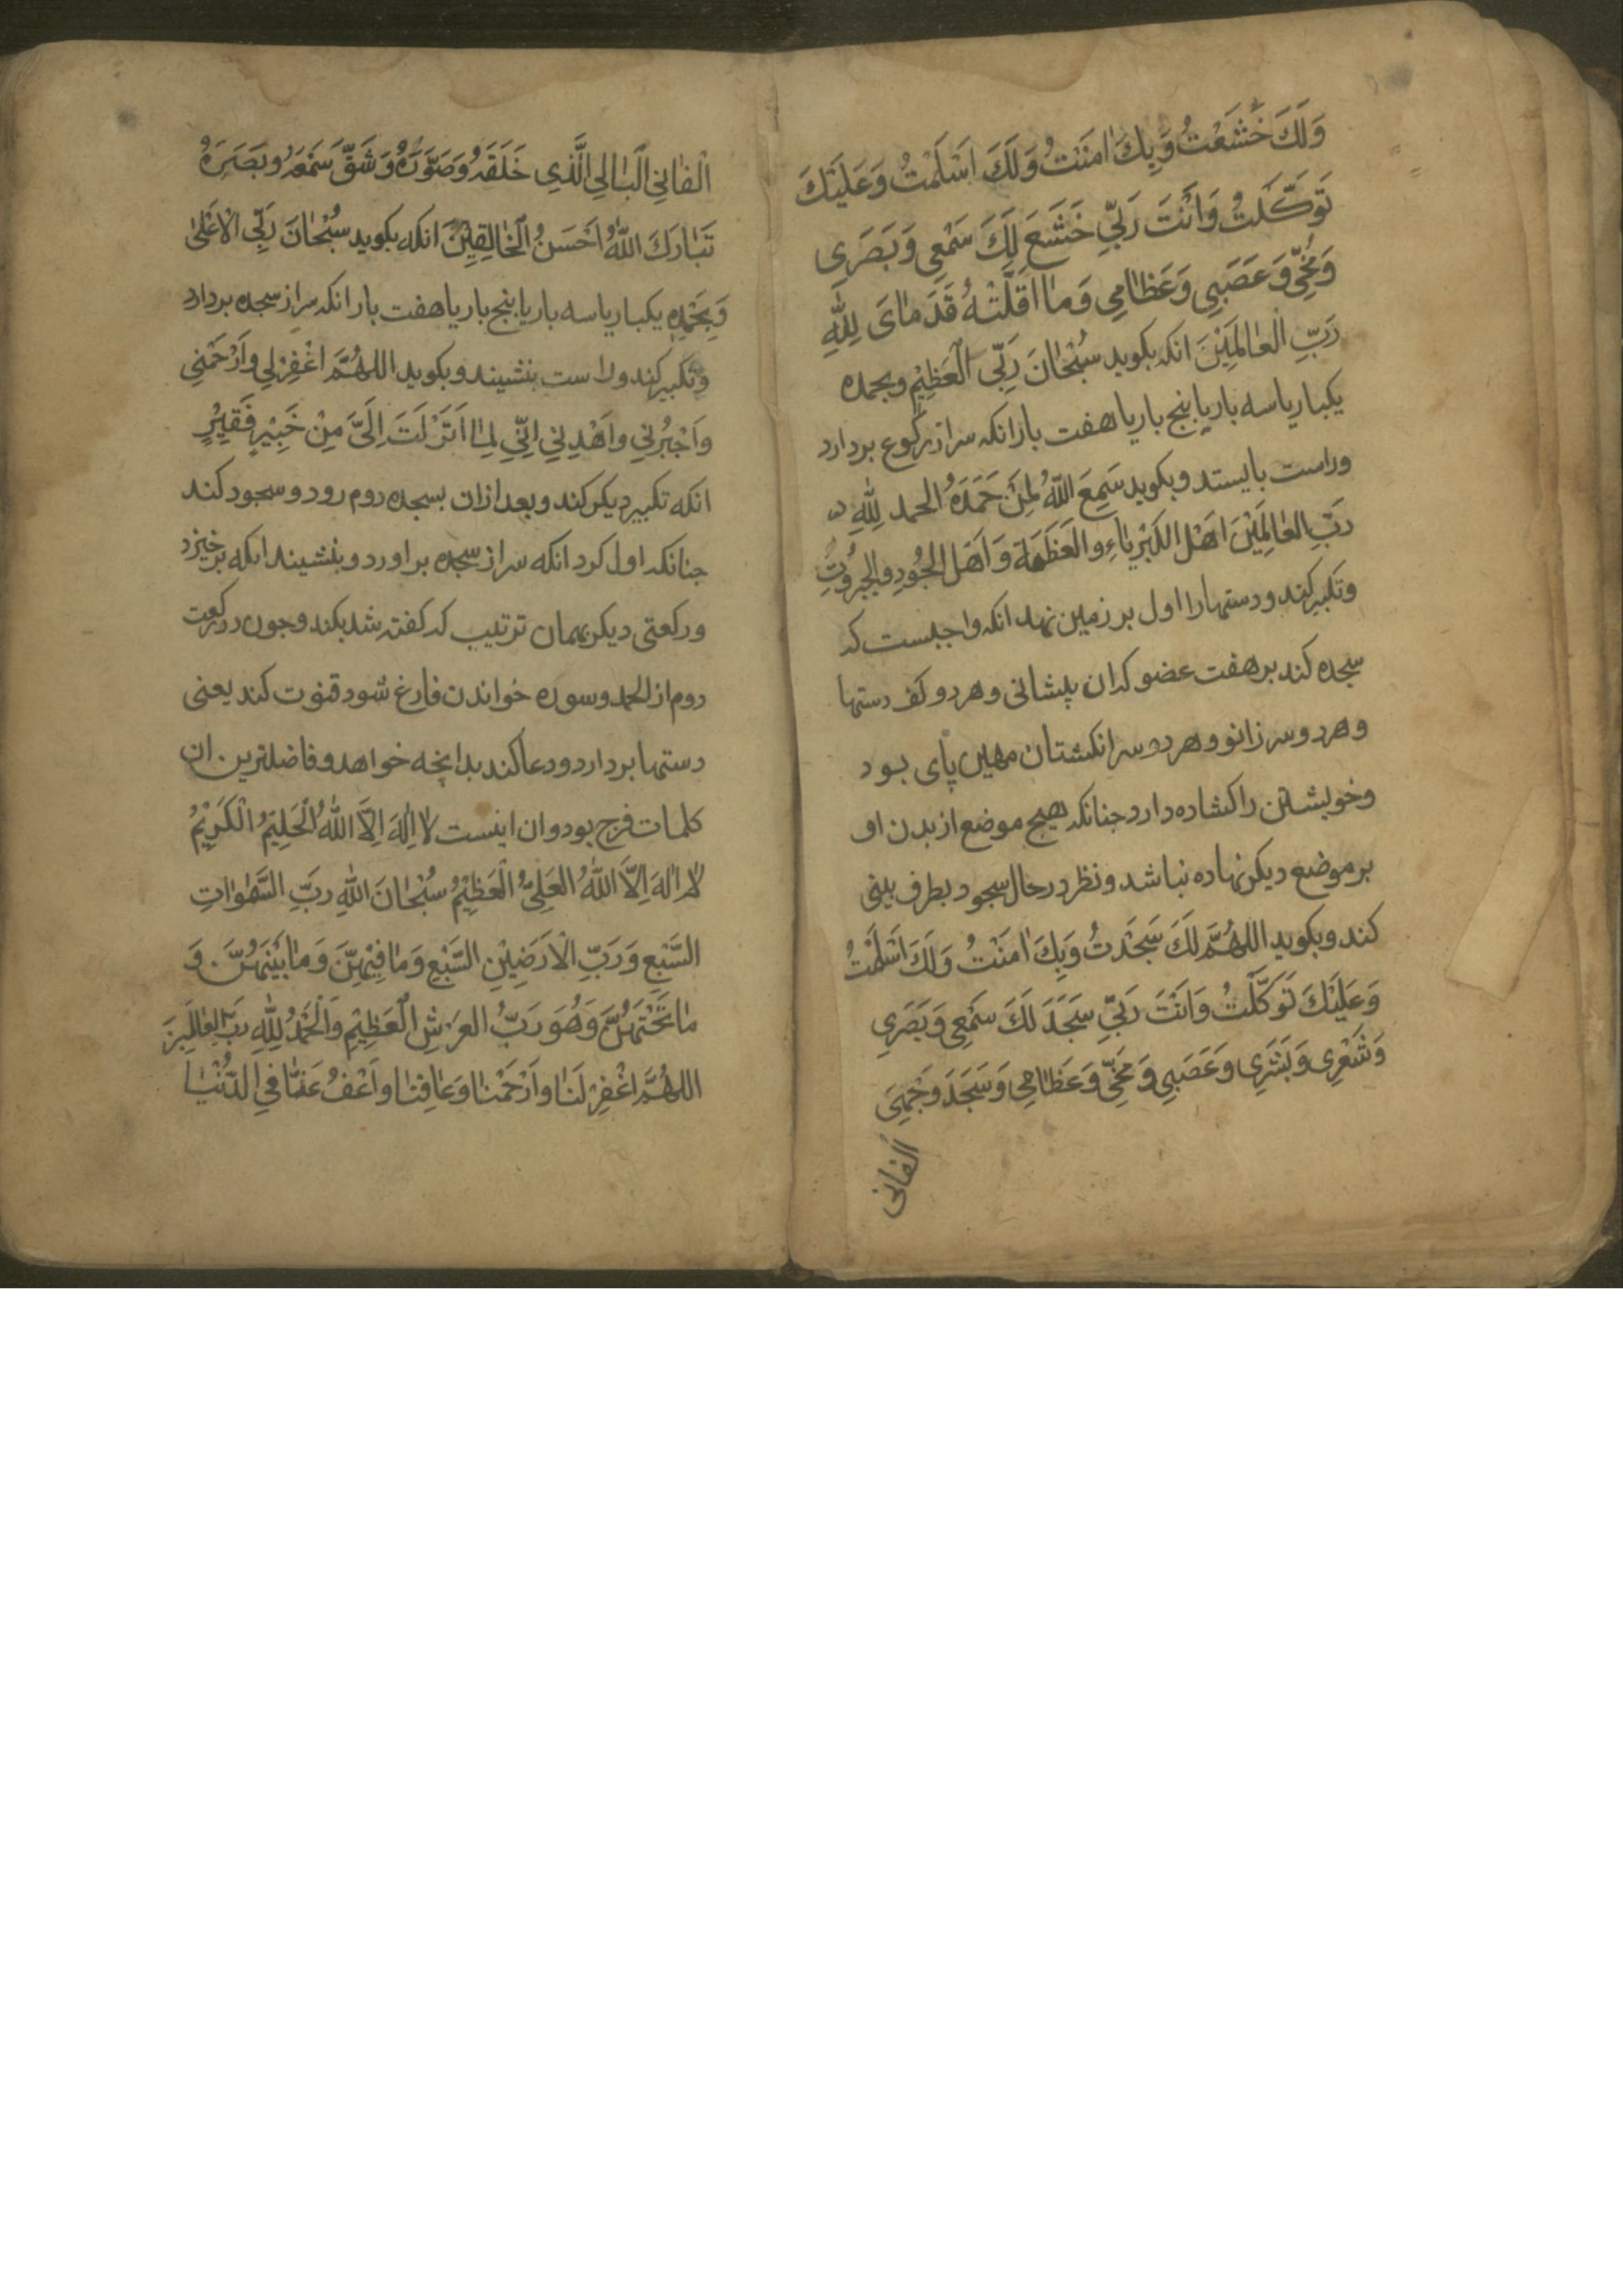 وَلَكَ خَشَعْتُ وَبِكَ اٰمَنْتُ وَلَكَ اَسْلَمْتُ وَعَلَيْكَ
تَوَكَّلْتُ وَاَنْتَ رَبّيِ خَشَعَ لَكَ سَمْعِي وَبَصَرِي
وَمُخّيِ وَعَصَبِي وَعَظٰامِي وَمٰا اَقَلَّتْهُ قَدَمٰاىَ لِلّٰهِ
رَبِّ الْعٰالَمِيْنَ انكه بكويد سُبْحٰانَ رَبِّيَ الْعَظِيْمِ وبحمده
يكبار ياسه بار يا بنج بار يا هفت بار انكه سر از ركوع بردارد
وراست بايستد وبكويد سَمِعَ اللّٰهُ لِمَنْ حَمَدَهُ الحمد لِلّٰهِ
رَبِّ العٰالَمِيْنَ اَهْلِ الكِبْرِيٰاءِ والعَظَمَةِ وَاَهْلَ الجُودِ وَالجَبَرُوْتِ
وتكبير كند ودستها را اول بر زمين نهد انكه واجبست كه
سجده كند بر هفت عضو كه ان پيشانى وهر دو كف دستها
وهر دو سر زانو وهر دو سر انكشتان مهين پاى بود
وخويشتن را كشاده دارد جنانكه هيج موضع از بدن او
بر موضع ديكر نهاده نباشد ونظر در حال سجود بطرف بينى
كند وبكويد اللهُمَّ لَكَ سَجَدْتُ وَبِكَ اٰمَنْتُ وَلَكَ اَسْلَمْتُ
وَعَلَيْكَ تَوَكَّلْتُ وَاَنْتَ رَبّيِ سَجَدَ لَكَ سَمْعِي وَبَصَرِي
وَشَعْرِى وَبَشَرِى وَعَصَبِي وَمُخّيِ وَعَظٰامِي وَسَجَدَ وَجْهِيَ
الفانى
الْفٰانِي الْبٰالِي الَّذِي خَلَقَهُ وَصَوَّرَهُ وَشَقَّ سَمْعَهُ وبَصَرَهُ
تَبٰارَكَ اللّٰهُ اَحْسَنُ الْخٰالِقِيْنَ انكه بكويد سُبْحٰانَ رَبِّيَ الْاَعْلىٰ
وَبِحَمْدِهِ يكبار ياسه بار يا بنج بار يا هفت بار انكه سر از سجده بردارد
وتكبير كند وراست بنشيند وبكويد اللهُمَّ اغْفِرْلِي وارْحَمْنِي
واَجْبُرْنِي واَهْدِنِي اِنّيِ لِمٰا اَنْزَلْتَ اِلَيَّ مِنْ خَيْرٍ فَقِيْرٌ
انكه تكبير ديكر كند وبعد ازان بسجده دوم رود وسجود كند
جنانكه اول كرد انكه سر از سجده براورد وبنشيند انكه برخيزد
وركعتى ديكر بهمان ترتيب كه كفته شد بكند وجون در ركعت
دوم از الحمد وسوره خواندن فارغ شود قنوت كند يعنى
دستها بردارد ودعا كند بدانچه خواهد وفاضلترين ان
كلمات فرج بود وان اينست لا اِلٰهَ اِلَّا اللّٰهُ الْحَلِيْمُ الْكَرِيْمُ
لا اِلٰهَ اِلَّا اللّٰهُ العَلِيُّ الْعَظِيْمُ سُبْحٰانَ اللّٰهِ رَبِّ السَّمٰوٰاتِ
السَّبْعِ وَرَبِّ الْاَرَضِيْنِ السَّبْعِ وَمٰا فِيْهِنَّ وَمٰا بَيْنَهُنَّ وَ
مٰا تَحْتَهُنَّ وَهُوَ رَبُّ العَرْشِ الْعَظِيْمِ وَالْحَمْدُ لِلّٰهِ رَبِّ الْعٰالَمِيْنَ
اللهُمَّ اغْفِرْ لَنٰا واَرْحَمْنٰا وَعٰافِنٰا واَعْفُ عَنّٰا فِي الدُّنْيٰا